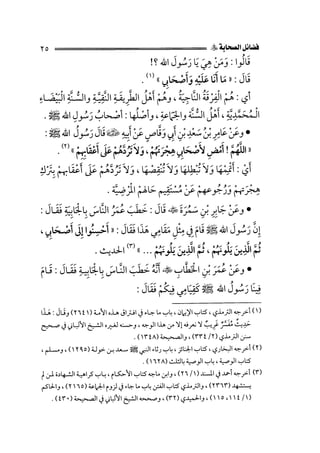 فضائل الصحابة ﷺ ٢٥
قَالُوا: وَمَنْ هِيَ يَا رَسُولَ الله ؟!
قَالَ: «مَا أَنَا عَلَيْهِ وَأَصْحَابِي»(١).
أي: هُمُ الْفِرْقَةُ النَّاجِيَةُ، وَهُمْ أَهْلُ الطَّرِيقَةِ النَّقِيَّةِ وَالسُّنَّةِ الْبَيْضَاءِ
الْمُحَمَّدِيَّةِ، أَهْلُ السُّنَّةِ وَالْجَمَاعَةِ، وَأَصْلُهَا: أَصْحَابُ رَسُولِ الله ﷺ.
• وعَنْ عَامِرِ بْنِ سَعْدِ بْنِ أَبِي وَقَّاصٍ عَنْ أَبِيهِ ﵁ قَالَ رَسُولُ الله ﷺ:
«اللَّهُمَّ! أَمْضِ لِأَصْحَابِي هِجْرَتَهُمْ، وَلَا تَرُدَّهُمْ عَلَى أَعْقَابِهِمْ»(٢).
أي: أَتْمِمْهَا وَلَا تُبْطِلْهَا وَلَا تُنْقِصْهَا، وَلَا تَرُدَّهُمْ عَلَى أَعْقَابِهِمْ بِتَرْكِ
هِجْرَتِهِمْ وَرُجُوعِهِمْ عَنْ مُسْتَقِيمِ حَالِهِمُ الْمَرْضِيَّةِ.
• وعَنْ جَابِرِ بْنِ سَمُرَةَ ﵁ قَالَ: خَطَبَ عُمَرُ النَّاسَ بِالْجَابِيَةِ فَقَالَ:
إِنَّ رَسُولَ الله ﷺ قَامَ فِي مِثْلِ مَقَامِي هَذَا فَقَالَ: «أَحْسِنُوا إِلَى أَصْحَابِي،
ثُمَّ الَّذِينَ يَلُونَهُمْ، ثُمَّ الَّذِينَ يَلُونَهُمْ ...»(٣) الحديث.
• وعَنْ عُمَرَ بْنِ الْخَطَّابِ ﵁ أَنَّهُ خَطَبَ النَّاسَ بِالْجَابِيةِ فَقَالَ: قَامَ
فِينَا رَسُولُ الله ﷺ كَقِيَامِي فِيكُمْ فَقَالَ:
(١) أخرجه الترمذي، كتاب الإيمان، باب ما جاء في افتراق هذه الأمة (٢٦٤١) وقَالَ: هَذَا
حَدِيثٌ مُفَسَّرٌ غَرِيبٌ لا نعرفه إلا من هذا الوجه، وحسنه لغيره الشيخ الألباني في صحيح
سنن الترمذي (٢/ ٣٣٤)، والصحيحة (١٣٤٨).
(٢) أخرجه البخاري، كتاب الجنائز، باب رثاء النبي ﷺ سعد بن خولة (١٢٩٥)، ومسلم،
كتاب الوصية، باب الوصية بالثلث (١٦٢٨).
(٣) أخرجه أحمد في المسند (١/ ٢٦)، وابن ماجه كتاب الأحكام، باب كراهية الشهادة لمن لم
يستشهد (٢٣٦٣)، والترمذي كتاب الفتن باب ما جاء في لزوم الجماعة (٢١٦٥)، والحاكم
(١/ ١١٤، ١١٥)، والحميدي (٣٢)، وصححه الشيخ الألباني في الصحيحة (٤٣٠).